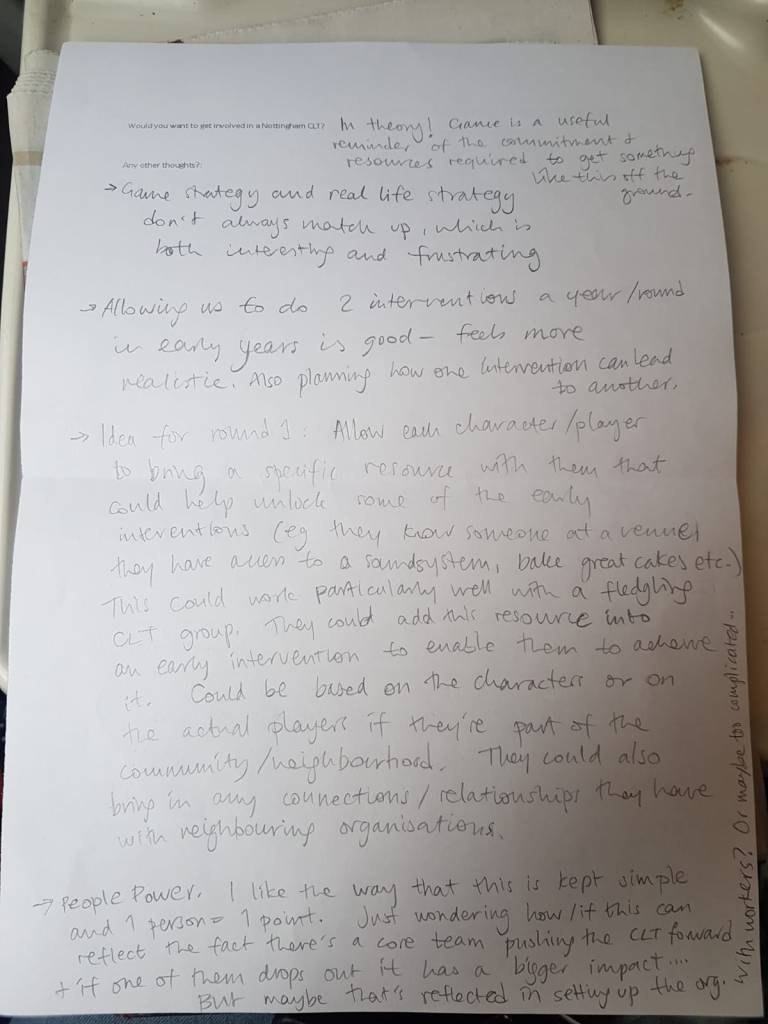 Would you want to get involved in a Nottingham CLT? In theory! Game is a useful
reminder of the commitment &
Any other thoughts?: resources required to get something
like this off the
ground.
→ Game strategy and real life strategy
don't always match up, which is
both interesting and frustrating
→ Allowing us to do 2 interventions a year/round
in early years is good - feels more
realistic. Also planning how one intervention can lead
to another.
→ Idea for round 1: Allow each character/player
to bring a specific resource with them that
could help unlock some of the early
interventions (eg they know someone at a venue,
they have access to a soundsystem, bake great cakes etc.)
This could work particularly well with a fledgling
CLT group. They could add this resource into
an early intervention to enable them to achieve
it. Could be based on the characters or on
the actual players if they're part of the
community/neighbourhood. They could also
bring in any connections/relationships they have
with neighbouring organisations.
→ People Power. I like the way that this is kept simple
and 1 person = 1 point. Just wondering how/if this can
reflect the fact there's a core team pushing the CLT forward
+ if one of them drops out it has a bigger impact....
But maybe that's reflected in setting up the org.
with workers? Or maybe too complicated..